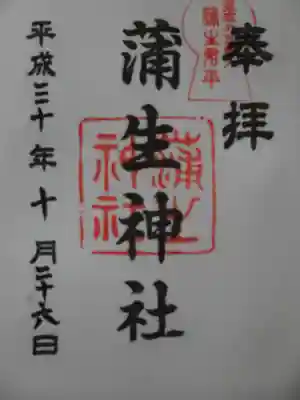 奉拝
蒲生君平
蒲生神社
蒲生
神社
平成三十年十月二十六日